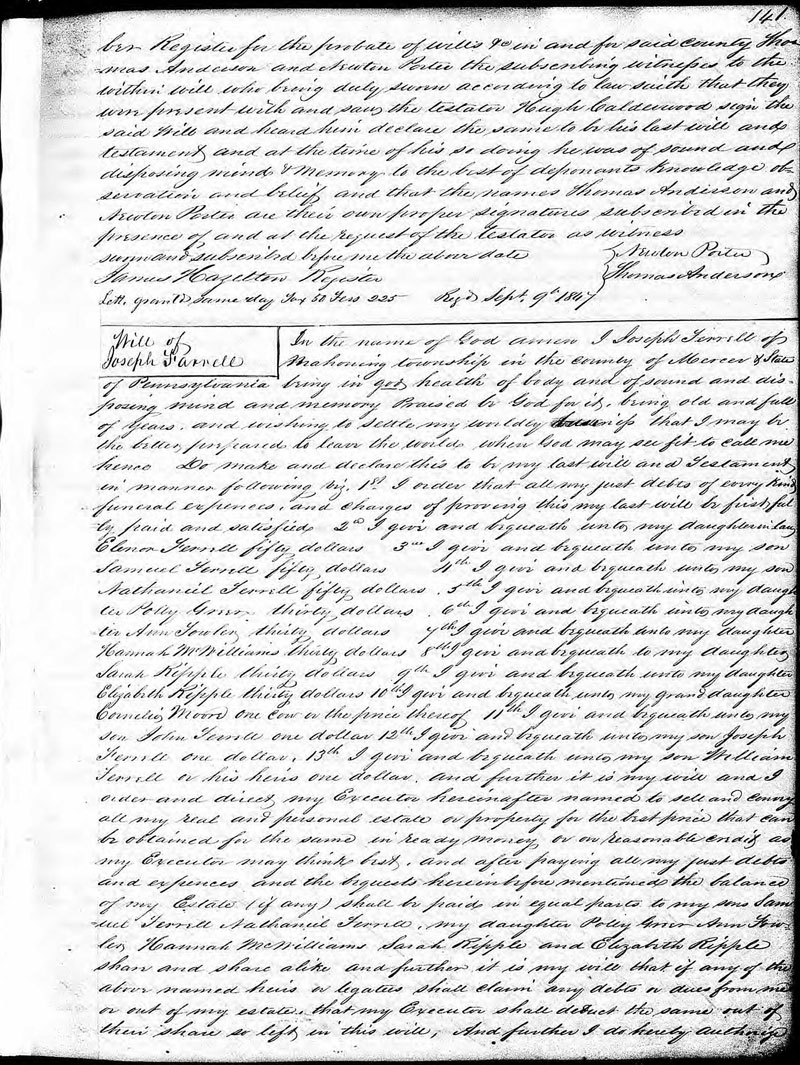 141
ber Register for the probate of wills &c in and for said county Tho
mas Anderson and Newton Porter the subscribing witnesses to the
within will who being duly sworn according to law saith that they
were present with and saw the testator Hugh Calderwood sign the
said Will and heard him declare the same to be his last will and
testament and at the time of his so doing he was of sound and
disposing mind & Memory to the best of deponants knowledge ob-
servation and belief and that the names Thomas Anderson and
Newton Porter are their own proper signatures subscribed in the
presence of and at the request of the testator as witness
sworn and subscribed before me the above date Newton Porter
James Hazelton Register Thomas Anderson
Lett. grantd same day Tax 50 Fees 225 Regd Sept. 9th 1847
Will of
Joseph Farrell
In the name of God amen I Joseph Ferrell of
Mahoning township in the county of Mercer & State
of Pennsylvania being in god health of body and of sound and dis-
posing mind and memory Praised be God for it, being old and full
of Years. and wishing to settle my worldly that I may be
the better prepared to leave the world when God may see fit to call me
hence Do make and declare this to be my last will and Testament
in manner following viz. 1st I order that all my just debts of every kind
funeral expences, and charges of proveing this my last will be first ful
ly paid and satisfied 2nd I give and bequeath unto my daughter in law
Elenor Ferrell fifty dollars 3rd I give and bequeath unto my son
Samuel Ferrell fifty dollars 4th I give and bequeath unto my son
Nathaniel Ferrell fifty dollars. 5th I give and bequeath unto my daugh
ter Polly Greer thirty dollars. 6th I give and bequeath unto my daugh
ter Ann Fowler thirty dollars 7th I give and bequeath unto my daughter
Hannah McWilliams thirty dollars 8th I give and bequeath to my daughter
Sarah Ripple thirty dollars 9th I give and bequeath unto my daughter
Elizabeth Ripple thirty dollars 10th I give and bequeath unto my grand daughter
Cornelia Moore one cow or the price thereof 11th I give and bequeath unto my
son John Ferrell one dollar 12th I give and bequeath unto my son Joseph
Ferrell one dollar, 13th I give and bequeath unto my son William
Ferrell or his heirs one dollar. and further it is my will and I
order and direct my Executor hereinafter named to sell and convey
all my real and personal estate or property for the best price that can
be obtained for the same in ready money or on reasonable credit as
my Executor may think best, and after paying all my just debts
and expences and the bequests hereinbefore mentioned the balance
of my Estate (if any) shall be paid in equal parts to my sons Sam
uel Ferrell Nathaniel Ferrell, my daughter Polly Greer Ann Fow-
ler Hannah McWilliams Sarah Ripple and Elizabeth Ripple
share and share alike and further it is my will that if any of the
above named heirs or legatees shall claim any debts or dues from me
or out of my estate, that my Executor shall deduct the same out of
their share so left in this will, And further I do hereby authorise